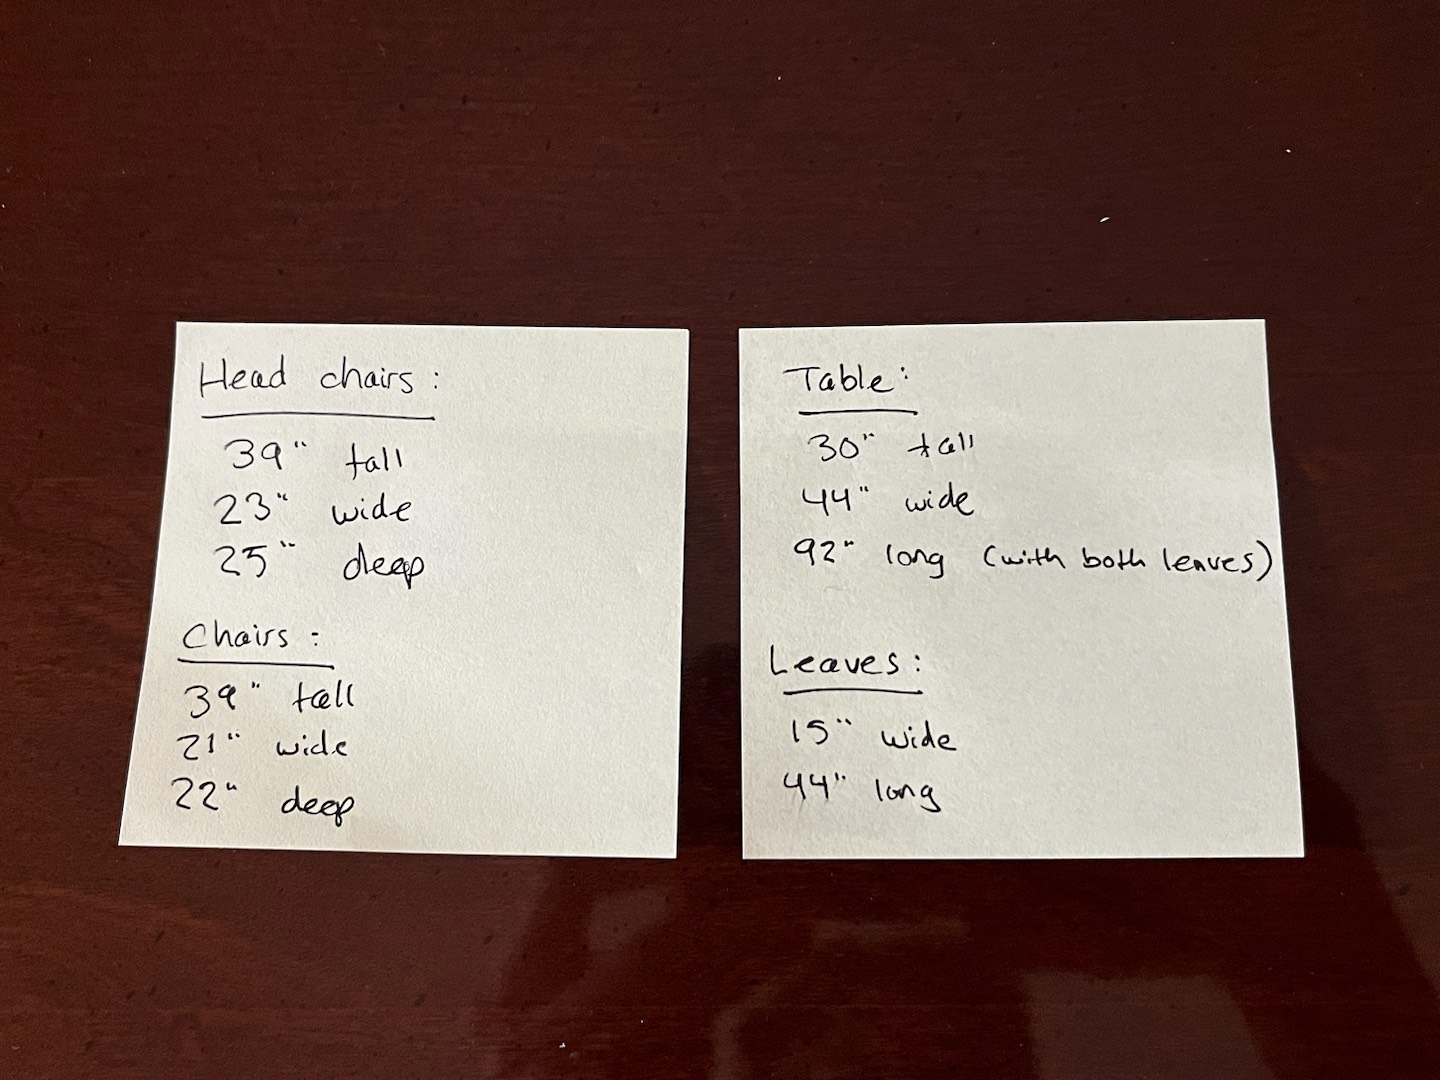 Head chairs:
39" tall
23" wide
25" deep
Chairs:
39" tall
21" wide
22" deep
Table:
30" tall
44" wide
92" long (with both leaves)
Leaves:
15" wide
44" long